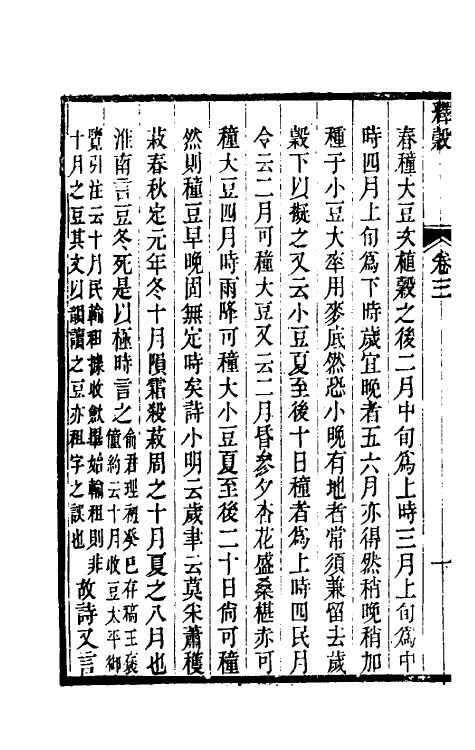 釋穀
卷三
一
春種大豆次植穀之後二月中旬爲上時三月上旬爲中
時四月上旬爲下時歲宜晚者五六月亦得然稍晚稍加
種子小豆大率用麥底然恐小晚有地者常須兼留去歲
穀下以擬之又云小豆夏至後十日種者爲上時四民月
令云二月可種大豆又云二月昏參夕杏花盛桑椹赤可
種大豆四月時雨降可種大小豆夏至後二十日尙可種
然則種豆早晚固無定時矣詩小明云歲聿云莫采蕭穫
菽春秋定元年冬十月隕霜殺菽周之十月夏之八月也
淮南言豆冬死是以極時言之俞君理初癸巳存稿王褒
僮約云十月收豆太平御
覽引注云十月民輸租據收斂畢始輸租則非
十月之豆其文以韻讀之豆亦租字之誤也
故詩又言